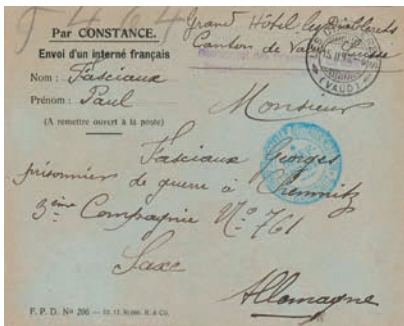 Par CONSTANCE.
Envoi d'un interné français
Nom : Fasciaux
Prénom : Paul
(A remettre ouvert à la poste)
Grand Hôtel les Diablerets
Canton de Vaud Suisse
(VAUD)
Monsieur
Fasciaux Georges
prisonnier de guerre à Chemnitz
3ème Compagnie No 761
Saxe
Allemagne
F. P. D. Nº 206